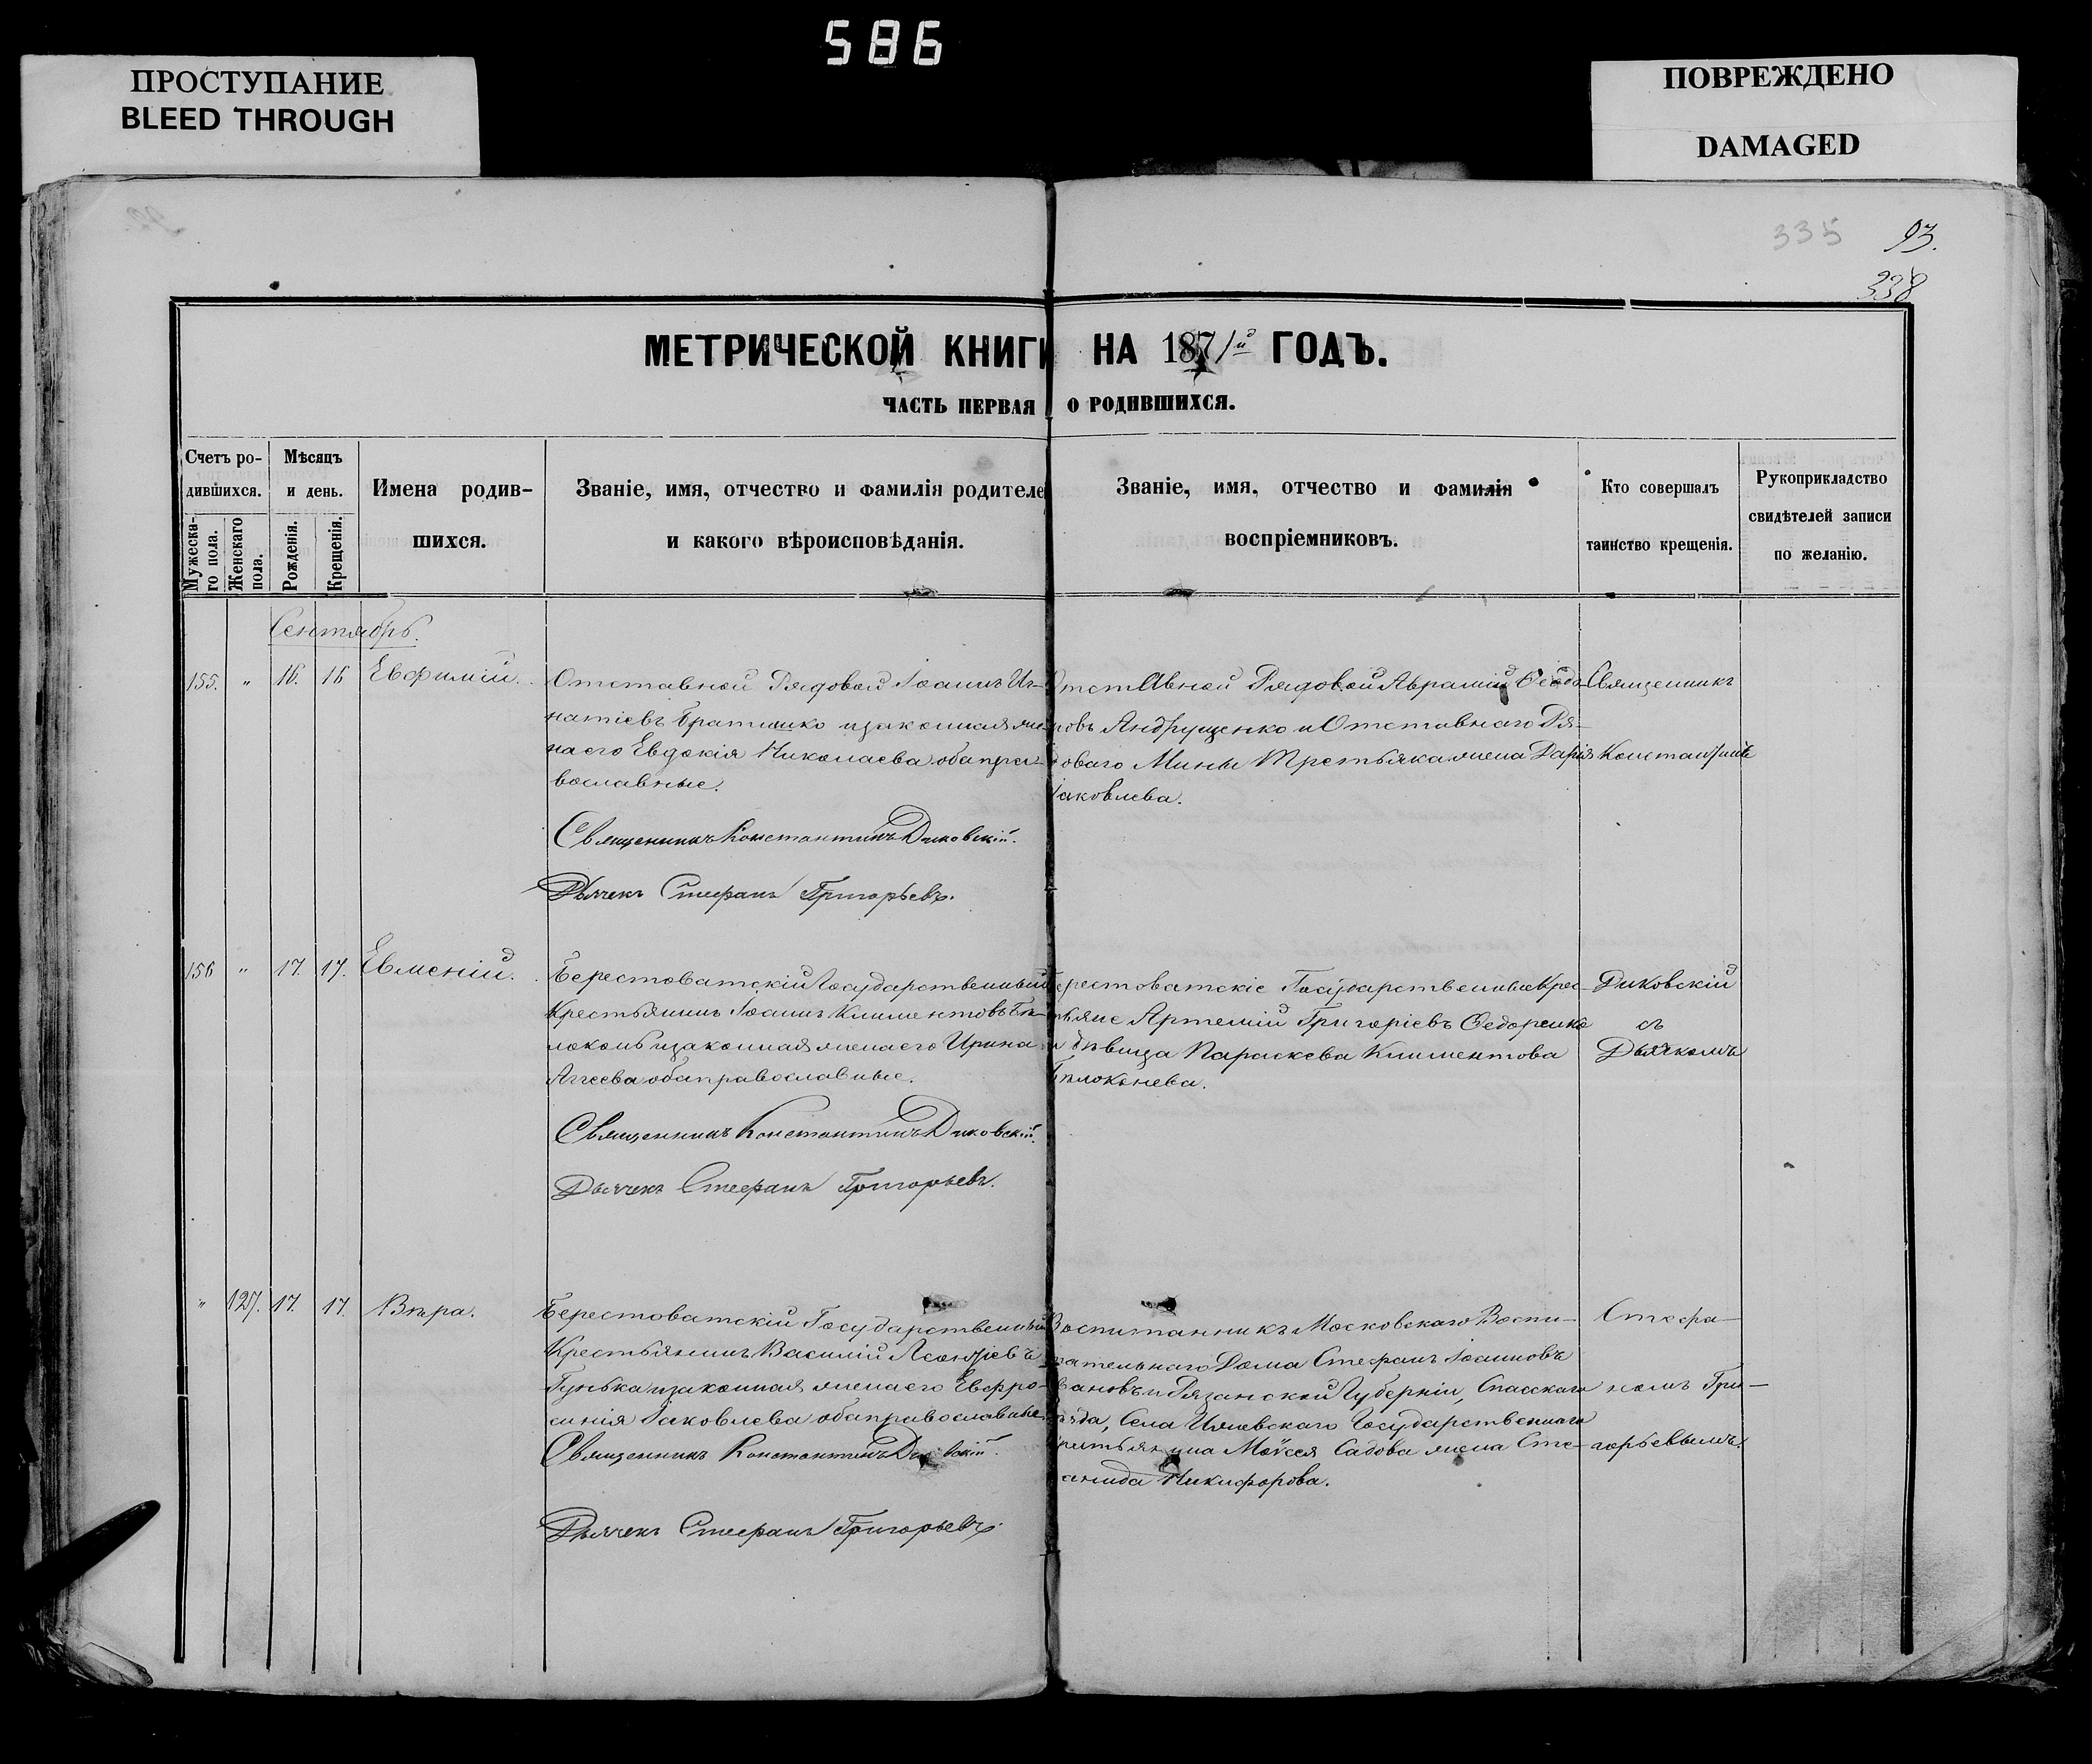 586
ПРОСТУПАНИЕ
BLEED THROUGH
ПОВРЕЖДЕНО
DAMAGED
335
93.
338
МЕТРИЧЕСКОЙ КНИГИ НА 1871й ГОДЪ.
ЧАСТЬ ПЕРВАЯ О РОДИВШИХСЯ.
Счетъ ро-
дившихся.
Мужеска-
го пола.
Женскаго
пола.
Мѣсяцъ
и день.
Рожденія.
Крещенія.
Имена родив-
шихся.
Званіе, имя, отчество и фамилія родителе
и какого вѣроисповѣданія.
Званіе, имя, отчество и фамилія
воспріемниковъ.
Кто совершалъ
таинство крещенія.
Рукоприкладство
свидѣтелей записи
по желанію.
Сентябрь.
155. " 16. 16 Евфимій.
Отставной Рядовой Іоаннъ Иг-
натіевъ Братишко и законная же
на его Евдокія Николаева оба пра-
вославные.
Священникъ Константинъ Диковскій.
Дьячекъ Стефанъ Григорьевъ.
Отставной Рядовой Аврамій Ѳеодо-
ровъ Андрущенко и Отставнаго Ря-
доваго Мины Третьяка жена Дарія
Іаковлева.
Священникъ
Константинъ
156 " 17. 17. Евменій.
Берестоватскій Государственный
Крестьянинъ Іоаннъ Климентовъ Бѣ-
локонь и законная жена его Ирина
Аггеева оба православные.
Священникъ Константинъ Диковскій.
Дьячекъ Стефанъ Григорьевъ.
Берестоватскіе Государственные Крес-
тьяне Артемій Григоріевъ Ѳедоренко
и дѣвица Параскева Климентова
Бѣлоконева.
Диковскій
съ
Дьячкомъ
" 127. 17. 17. Вѣра.
Берестоватскій Государственный
Крестьянинъ Василій Леонтіевъ
Гунька и законная жена его Евфро-
синія Іаковлева оба православные.
Священникъ Константинъ Диковскій.
Дьячекъ Стефанъ Григорьевъ.
Воспитанникъ Московскаго Воспи-
тательнаго Дома Стефанъ Іоанновъ
Ивановъ и Рязанской Губерніи, Спасскаго
уѣзда, Села Государственнаго
крестьянина Моѵсея Садова жена Сте-
анида Никифорова.
Стефа-
номъ Гри-
горьевымъ.